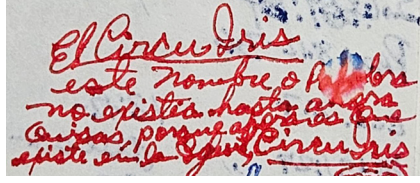 El Circu Iris
este nombre o Palabra
no existea hasta ahora
Quisas, porque ahora es que
existe en la Circu Iris